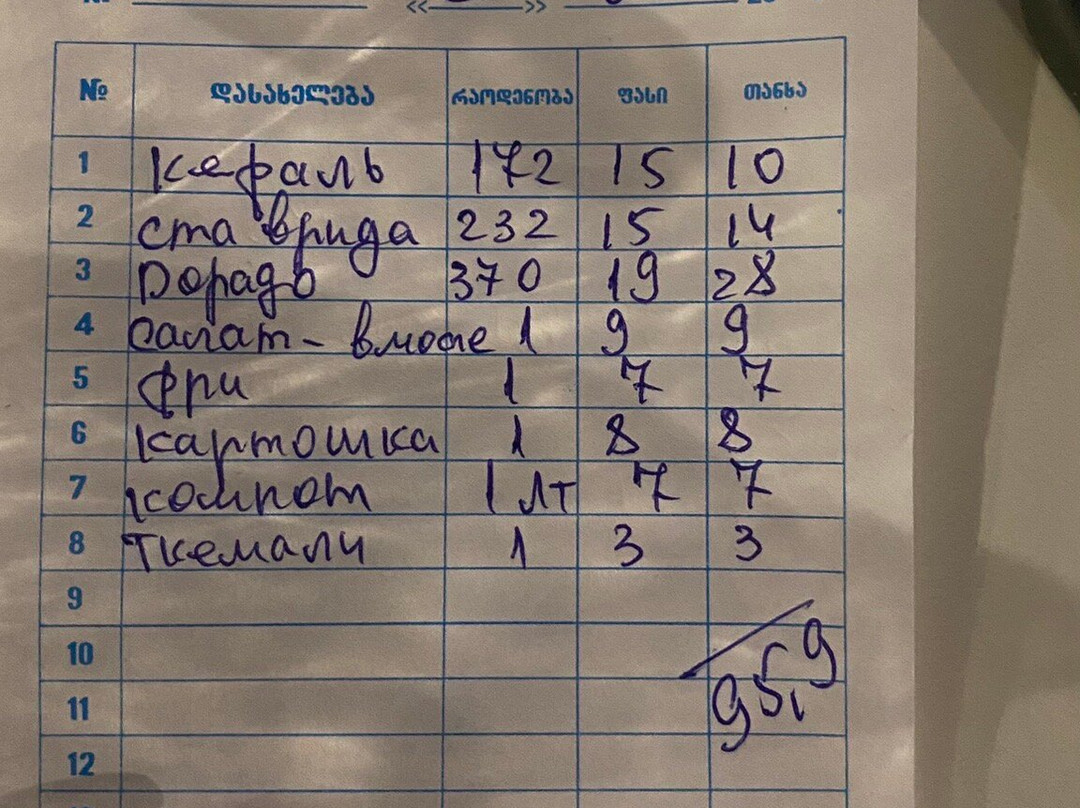 № << >>
№ დასახელება რაოდენობა ფასი თანხა
1 Кефаль 172 15 10
2 ставрида 232 15 14
3 Дорадо 370 19 28
4 Салат - 1 9 9
5 фри 1 7 7
6 картошка 1 8 8
7 компот 1 лт 7 7
8 Ткемали 1 3 3
9
10
95,9
11
12